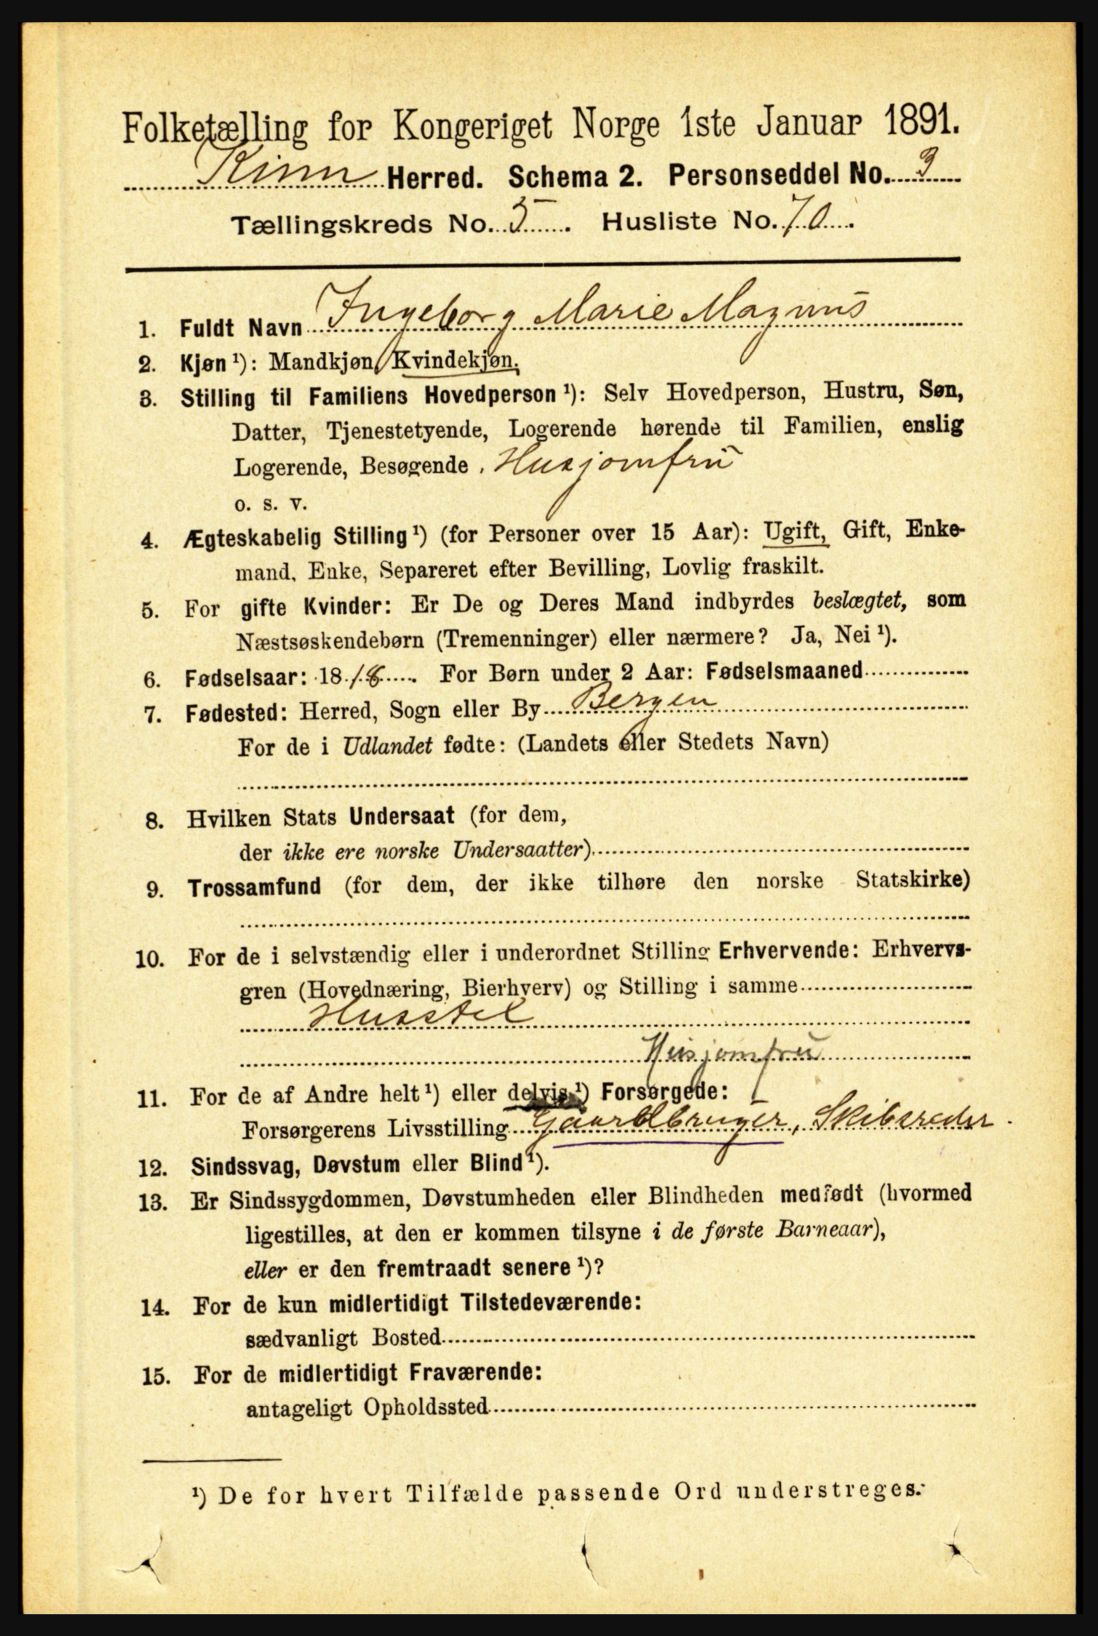 Folketælling for Kongeriget Norge 1ste Januar 1891.
Kinn Herred. Schema 2. Personseddel No. 3
Tællingskreds No. 5. Husliste No. 70.
1. Fuldt Navn Ingeborg Marie Magnus
2. Kjøn ¹): Mandkjøn, Kvindekjøn.
3. Stilling til Familiens Hovedperson ¹): Selv Hovedperson, Hustru, Søn,
Datter, Tjenestetyende, Logerende hørende til Familien, enslig
Logerende, Besøgende . Husjomfru
o. s. v.
4. Ægteskabelig Stilling ¹) (for Personer over 15 Aar): Ugift, Gift, Enke-
mand, Enke, Separeret efter Bevilling, Lovlig fraskilt.
5. For gifte Kvinder: Er De og Deres Mand indbyrdes beslægtet, som
Næstsøskendebørn (Tremenninger) eller nærmere? Ja, Nei ¹).
6. Fødselsaar: 1818. For Børn under 2 Aar: Fødselsmaaned
7. Fødested: Herred, Sogn eller By Bergen
For de i Udlandet fødte: (Landets eller Stedets Navn)
8. Hvilken Stats Undersaat (for dem,
der ikke ere norske Undersaatter)
9. Trossamfund (for dem, der ikke tilhøre den norske Statskirke)
10. For de i selvstændig eller i underordnet Stilling Erhvervende: Erhvervs-
gren (Hovednæring, Bierhverv) og Stilling i samme
Husstel
Husjomfru
11. For de af Andre helt ¹) eller delvis ¹) Forsørgede:
Forsørgerens Livsstilling Gaardbruger, Skibsreder.
12. Sindssvag, Døvstum eller Blind ¹).
13. Er Sindssygdommen, Døvstumheden eller Blindheden medfødt (hvormed
ligestilles, at den er kommen tilsyne i de første Barneaar),
eller er den fremtraadt senere ¹)?
14. For de kun midlertidigt Tilstedeværende:
sædvanligt Bosted
15. For de midlertidigt Fraværende:
antageligt Opholdssted
¹) De for hvert Tilfælde passende Ord understreges.